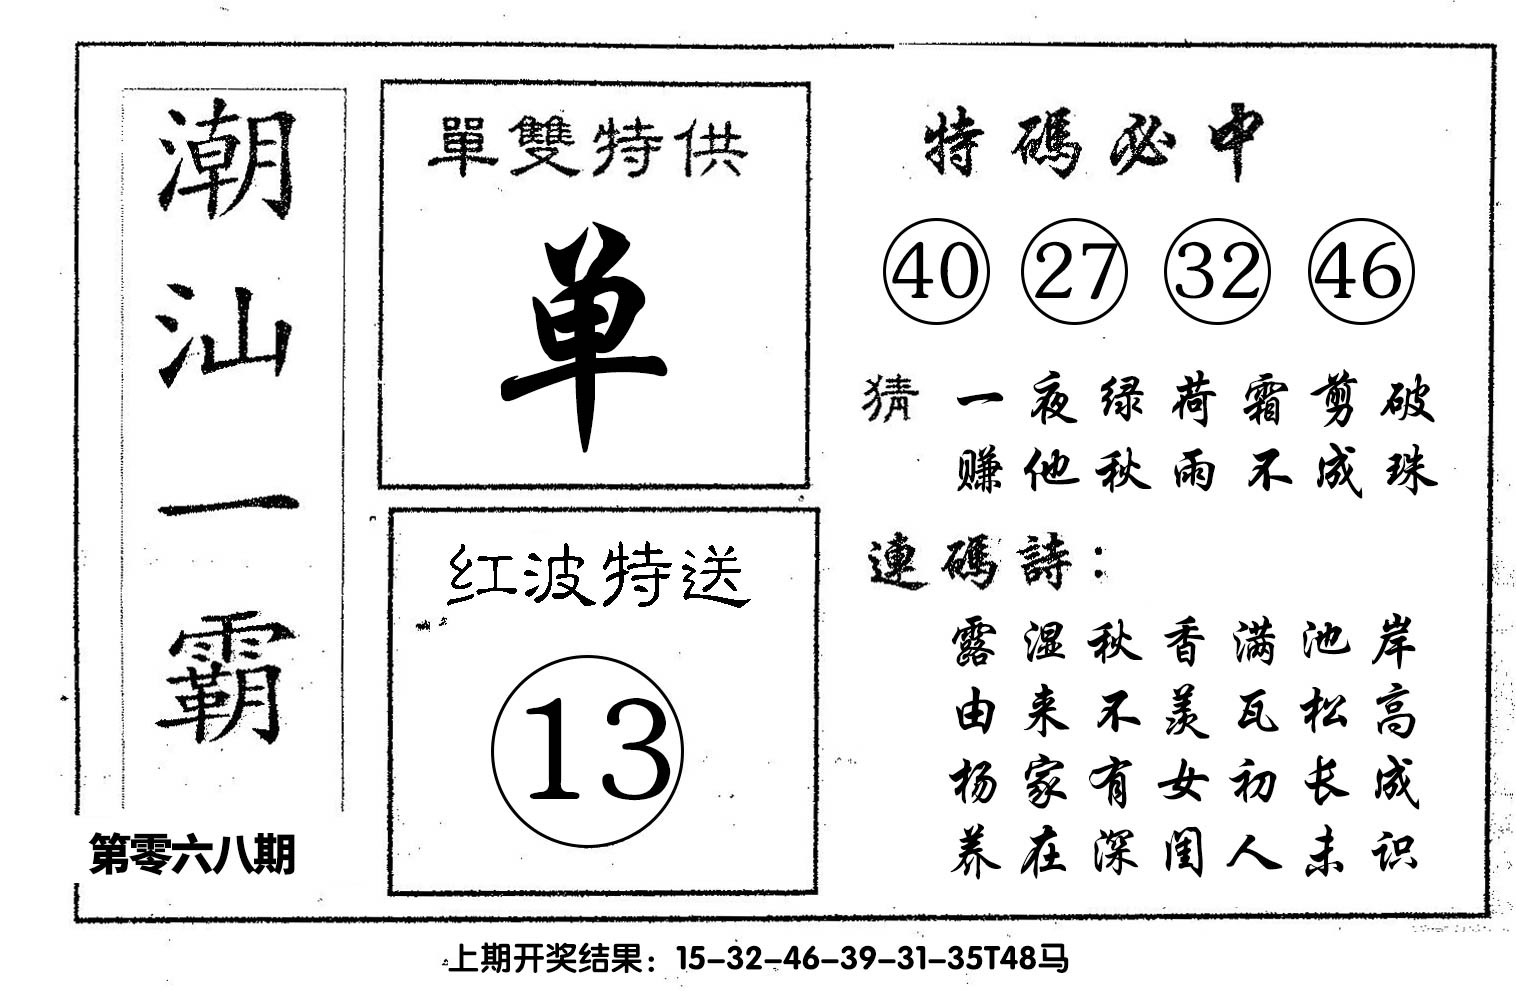 潮汕一霸
第零六八期
單雙特供
单
红波特送
13
特碼必中
40 27 32 46
猜 一夜绿荷霜剪破
赚他秋雨不成珠
連碼詩：
露湿秋香满池岸
由来不羡瓦松高
杨家有女初长成
养在深闺人未识
上期开奖结果：15-32-46-39-31-35T48马